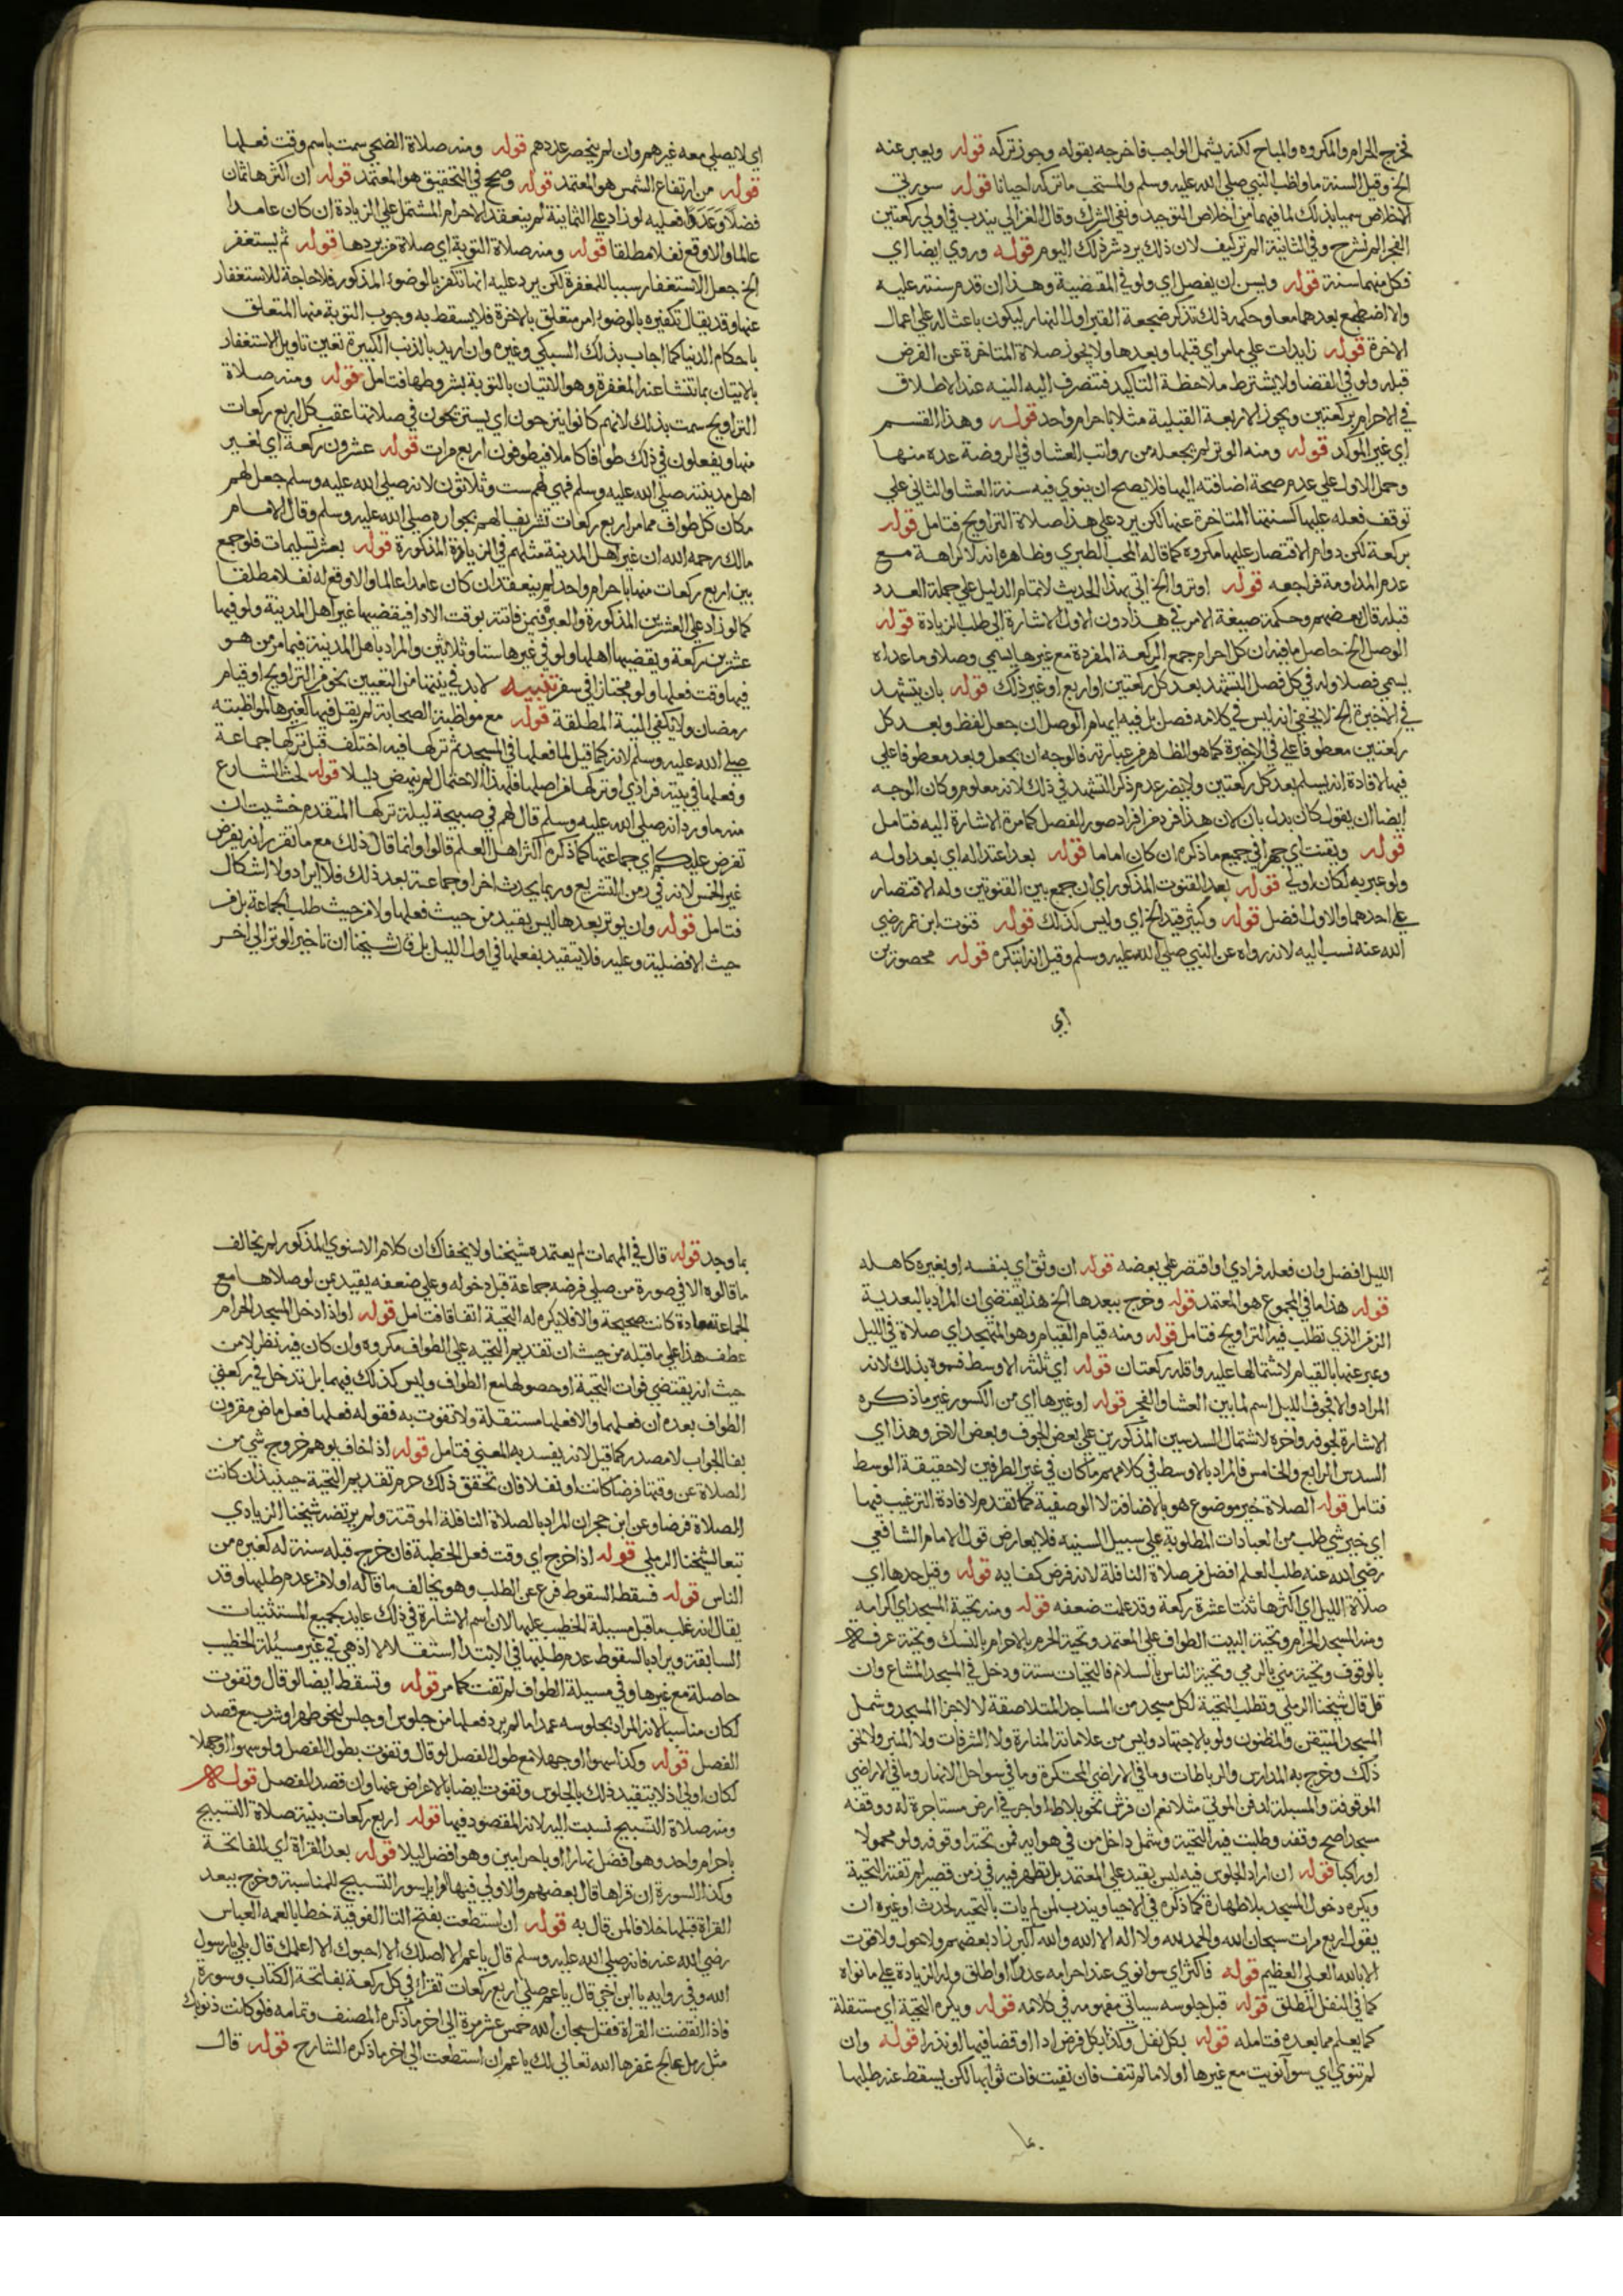 فخرج الحرام والمكروه والمباح لكنه يشمل الواجب فاخرجه بقوله وجوز تركه قوله ويعبر عنه
الخ وقيل السنة ما واظب النبي صلي الله عليه وسلم والمستحب ما تركه احيانا قوله سورتي
الاخلاص سميا بذلك لما فيهما من اخلاص التوحيد ونفي الشرك وقال الغزالي يندب في اولي ركعتين
الفجر الم نشرح وفي الثانية الم تركيف لان ذلك يرد شر ذلك اليوم قوله وروي ايضا اي
فكل منهما سنة قوله ويسن ان يفصل اي ولو في المقضية وهذا ان قدم سنته عليه
والاضطجع بعدهما معا وحكمة ذلك تذكر ضجعة القبر اول النهار ليكون باعثا له علي اعمال
الاخرة قوله زايدات علي ما مر اي قبلها وبعدها ولا يجوز صلاة المتاخرة عن الفرض
قبله ولو في القضا ولا يشترط ملاحظة التاكيد فتنصرف اليه النيه عند الاطلاق
في الاحرام بركعتين ويجوز الاربعة القبلية مثلا باحرام واحد قوله وهذا القسم
اي غير الموكد قوله ومنه الوتر لم يجعله من رواتب العشا وفي الروضة عده منها
وحمل الاول علي عدم صحة اضافته اليها فلا يصح ان ينوي فيه سنة العشا والثاني علي
توقف فعله عليها كسنتها المتاخرة عنها لكن يرد علي هذا صلاة التراويح فتامل قوله
بركعة لكن دوام الاقتصار عليها مكروه كما قاله المحب الطبري وظاهره انه لا كراهة مع
عدم المداومة فراجعه قوله اوتروا الخ اتي بهذا الحديث لاتمام الدليل علي جملة العدد
قبله قال بعضهم وحكمة صيغة الامر في هذا دون الاول الاشارة الي طلب الزيادة قوله
الوصل الخ حاصل ما فيه ان كل احرام جمع الركعة المفردة مع غيرها يسمي وصلا وما عداه
يسمي فصلا وله في كل فصل التشهد بعد كل ركعتين او اربع او غير ذلك قوله بان يتشهد
في الاخيرة الخ لا يخفي انه ليس في كلامه فصل بل فيه ايهام الوصل ان جعل لفظ وبعد كل
ركعتين معطوفا علي في الاخيرة كما هو الظاهر من عبارته فالوجه ان يجعل وبعد معطوفا علي
فيها لافادة انه يسلم بعد كل ركعتين ولا يضر عدم ذكر التشهد في ذلك لانه معلوم وكان الوجه
ايضا ان يقول كان بدل بان لان هذا فرد من افراد صور الفصل كما مرة الاشارة اليه فتامل
قوله ويقنت اي جهرا في جميع ما ذكره ان كان اماما قوله بعد اعتداله اي بعد اوله
ولو عبر به لكان اولي قوله بعد القنوت المذكور اي ان جمع بين القنوتين وله الاقتصار
علي احدهما والاول افضل قوله وكيثر قيد الخ اي وليس كذلك قوله قنوت ابن عمر رضي
الله عنه نسب اليه لانه رواه عن النبي صلي الله عليه وسلم وقيل انه ابتكره قوله محصورين
اي
اي لا يصلي معه غيرهم وان لم ينحصر عددهم قوله ومنه صلاة الضحي سمت باسم وقت فعلها
قوله من ارتفاع الشمس هو المعتمد قوله وصحح في التحقيق هو المعتمد قوله ان اكثرها ثمان
فضلا وعددا فعليه لو زاد علي الثمانية لم ينعقد الاحرام المشتمل علي الزيادة ان كان عامدا
عالما والا وقع نفلا مطلقا قوله ومنه صلاة التوبة اي صلاة من يردها قوله ثم يستغفر
الخ جعل الاستغفار سببا للمغفرة لكن يرد عليه انها تكفر بالوضوء المذكور فلا حاجة للاستغفار
عنها وقد يقال تكفيره بالوضوء امر متعلق بالاخرة فلا يسقط به وجوب التوبة منها المتعلق
باحكام الدنيا كما اجاب بذلك السبكي وغيره وان اريد بالذنب الكبيرة تعين تاويل الاستغفار
بالاتيان بما تنشا عنه المغفرة وهو الاتيان بالتوبة بشروطها فتامل قوله ومنه صلاة
التراويح سمت بذلك لانهم كانوا يتروحون اي يستريحون في صلاتها عقب كل اربع ركعات
منها ويفعلون في ذلك طوافا كاملا فيطوفون اربع مرات قوله عشرون ركعة اي لغير
اهل مدينته صلي الله عليه وسلم فهي لهم ست وثلاثون لانه صلي الله عليه وسلم جعل لهم
مكان كل طواف مما مر اربع ركعات تشريفا لهم بجواره صلي الله عليه وسلم وقال الامام
مالك رحمه الله ان غير اهل المدينة مثلهم في الزيادة المذكورة قوله بعشر تسليمات فلو جمع
بين اربع ركعات منها باحرام واحد لم ينعقد ان كان عامدا عالما والا وقع له نفلا مطلقا
كما لو زاد علي العشرين المذكورة والعبر فيمن فاتته بوقت الادا فيقضيها غير اهل المدينة ولو فيها
عشرين ركعة ويقضيها اهلها ولو في غيرها ستا وثلاثين والمراد باهل المدينة فيما مر من هو
فيها وقت فعلها ولو مجتازا في سفر تنبيه لابد في نيتها من التعيين نحو من التراويح او قيام
رمضان ولا تكفي النية المطلقة قوله مع مواظبة الصحابة لم يقل فيها كغيرها لمواظبته
صلي الله عليه وسلم لانه كما قيل لما فعلها في المسجد ثم تركها فيه اختلف قبل تركها جماعة
وفعلها في بيته فرادي او تركها من اصلها فلهذا الاحتمال لم ينهض دليلا قوله لحث الشارع
منه ما ورد انه صلي الله عليه وسلم قال لهم في صبيحة ليلة تركها المتقدم خشيت ان
تفرض عليكم اي جماعتها كما ذكره اكثر اهل العلم قالوا وانما قال ذلك مع ما تقرر انه لا يفرض
غير الخمس لانه في زمن التشريع وربما يحدث اخرا وجماعة بعد ذلك فلا ايراد ولا اشكال
فتامل قوله وان يوتر بعدها ليس بقيد من حيث فعلها ولا من حيث طلب الجماعة بل من
حيث الافضلية وعليه فلا يتقيد بفعلها في اول الليل بل قال شيخنا ان تاخير الوتر الي اخر
الليل افضل وان فعله فرادي او اقتصر علي بعضه قوله ان وثق اي بنفسه او بغيره كاهله
قوله هذا ما في المجموع هو المعتمد قوله وخرج ببعدها الخ هذا يقتضي ان المراد بالبعدية
الزمن الذي تطلب فيه التراويح فتامل قوله ومنه قيام القيام وهو التهجد اي صلاة في الليل
وعبر عنها بالقيام لاشتمالها عليه واقله ركعتان قوله اي ثلثه الاوسط فسموه بذلك لانه
المراد والا فجوف الليل اسم لما بين العشا والفجر قوله او غيرها اي من الكسور غير ما ذكره
الاشارة لجوفه واخره لاشتمال السدسين المذكورين علي بعض الجوف وبعض الاخر وهذا اي
السدس الرابع والخامس فالمراد بالاوسط في كلامهم ما كان في غير الطرفين لا حقيقة الوسط
فتامل قوله الصلاة خير موضوع هو بالاضافة لا الوصفية كما تقدم لافادة الترغيب فيها
اي خير شي طلب من العبادات المطلوبة علي سبيل السنيه فلا يعارض قول الامام الشافعي
رضي الله عنه طلب العلم افضل من صلاة النافلة لانه فرض كفايه قوله وقيل حدها اي
صلاة الليل اي اكثرها ثنتا عشرة ركعة وقد علمت ضعفه قوله ومنه تحية المسجد اي اكرامه
ومنه المسجد الحرام وتحية البيت الطواف علي المعتمد وتحية الحرم بالاحرام بالنسك وتحية عرفه
بالوقوف وتحية مني بالرمي وتحية الناس بالسلام فالتحيات ستة ودخل في المسجد المشاع وان
قل قال شيخنا الرملي وتطلب التحية لكل مسجد من المساجد المتلاصقة لا لاجزا المسجد وشمل
المسجد المتيقن والمظنون ولو بالاجتهاد وليس من علاماته المنارة ولا الشرفات ولا المنبر ولا نحو
ذلك وخرج به المدارس والرباطات وما في الاراضي المحتكرة وما في سواحل الانهار وما في الاراضي
الموقوفة والمسبلة لدفن الموتي مثلا نعم ان فرش نحو بلاط او اجر في ارض مستاجرة له ووقفه
مسجدا صح وقفه وطلبت فيه التحية وشمل داخل من في هوايه فمن تحته او قوفه ولو محمولا
او راكبا قوله ان اراد الجلوس فيه ليس بقيد علي المعتمد بل تطهر فيه في زمن قصير لم تفته التحية
ويكره دخول المسجد بلا طهارة كما ذكره في الاحيا ويندب لمن لم يات بالتحيه لحدث او غيره ان
يقول اربع مرات سبحان الله والحمد لله ولا اله الا الله والله اكبر زاد بعضهم ولا حول ولا قوت
الا بالله العلي العظيم قوله فاكثر اي سوا نوي عند احرامه عددا او اطلق وله الزيادة علي ما نواه
كما في النفل المطلق قوله قبل جلوسه سياتي مفهومه في كلامه قوله ويكره التحية اي مستقلة
كما يعلم مما بعده فتامله قوله بكل نفل وكذا بكل فرض ادا او قضا فيها او نذرا قوله وان
لم تنوي اي سوا نويت مع غيرها او لا ما لم تنف فان نفيت فات ثوابها لكن يسقط عنه طلبها
بما وجد قوله قال في المهمات لم يعتمده شيخنا ولا يخفاك ان كلام الاسنوي المذكور لم يخالف
ما قالوه الا في صورة من صلي فرضه جماعة قبل دخوله وعلي ضعفه يقيد بمن لو صلاها مع
الجماعة معادة كانت صحيحة والا فلا يكره له التحية اتفاقا فتامل قوله او اذا دخل المسجد الحرام
عطف هذا علي ما قبله من حيث ان تقديم التحيه علي الطواف مكروه وان كان فيه نظر لا من
حيث انه يقتضي فوات التحية او حصولها مع الطواف وليس كذلك فيهما بل تدخل في ركعتي
الطواف بعده ان فعلهما والا فعلها مستقلة ولا تفوت به فقوله فعلها فعل ماض مقرون
بفا الجواب لا مصدر كما قيل لانه يفسد به المعني فتامل قوله اذا خاف يوهم خروج شي من
الصلاة عن وقتها فرضا كانت او نفلا فان تحقق ذلك حرم تقديم التحية حينيذ ان كانت
الصلاة فرضا وعن ابن حجر ان المراد بالصلاة النافلة الموقتة ولم يرتضه شيخنا الزيادي
تبعا لشيخنا الرملي قوله اذا خرج اي وقت فعل الخطبة فان خرج قبله سنة له كغيره من
الناس قوله فسقط السقوط فرع عن الطلب وهو يخالف ما قاله اولا من عدم طلبها وقد
يقال انه غلب ما قبل مسيلة الخطيب عليها لان اسم الاشارة في ذلك عايد بجميع المستثنيات
السابقة ويراد بالسقوط عدم طلبها في الابتدا استقلالا اذ هي في غير مسئلة الخطيب
حاصلة مع غيرها وفي مسيلة الطواف لم تفت كما مر قوله وتسقط ايضا لو قال وتفوت
لكان مناسبا لانه المراد بجلوسه عمدا ما لم يرد فعلها من جلوس او جلس لنحو طهر او شرب مع قصد
الفصل قوله وكذا سهوا او جهلا مع طول الفصل لو قال وتفوت بطول الفصل ولو سهوا او جهلا
لكان اولي اذ لا يتقيد ذلك بالجلوس وتفوت ايضا بالاعراض عنها وان قصد الفصل قوله
ومنه صلاة التسبيح نسبت اليه لانه المقصود فيها قوله اربع ركعات بنية صلاة التسبيح
باحرام واحد وهو افضل نهارا او باحرامين وهو افضل ليلا قوله بعد القراة اي للفاتحة
وكذا السورة ان قراها قال بعضهم والاولي فيها اوايل سور التسبيح للمناسبة وخرج ببعد
القراة قبلها خلافا لمن قال به قوله ان استطعت بفتح التا الفوقية خطابا لعمه العباس
رضي الله عنه فانه صلي الله عليه وسلم قال يا عم الا اصلك الا احبوك الا اعلمك قال بلي يا رسول
الله وفي روايه يا ابن اخي قال يا عم صلي اربع ركعات تقرا في كل ركعة بفاتحة الكتاب وسورة
فاذا انقضت القراة فقل سبحان الله خمس عشر مرة الي اخر ما ذكره المصنف وتمامه فلو كانت ذنوبك
مثل رمل عالج غفرها الله تعالي لك يا عم ان استطعت الي اخر ما ذكره الشارح قوله قال